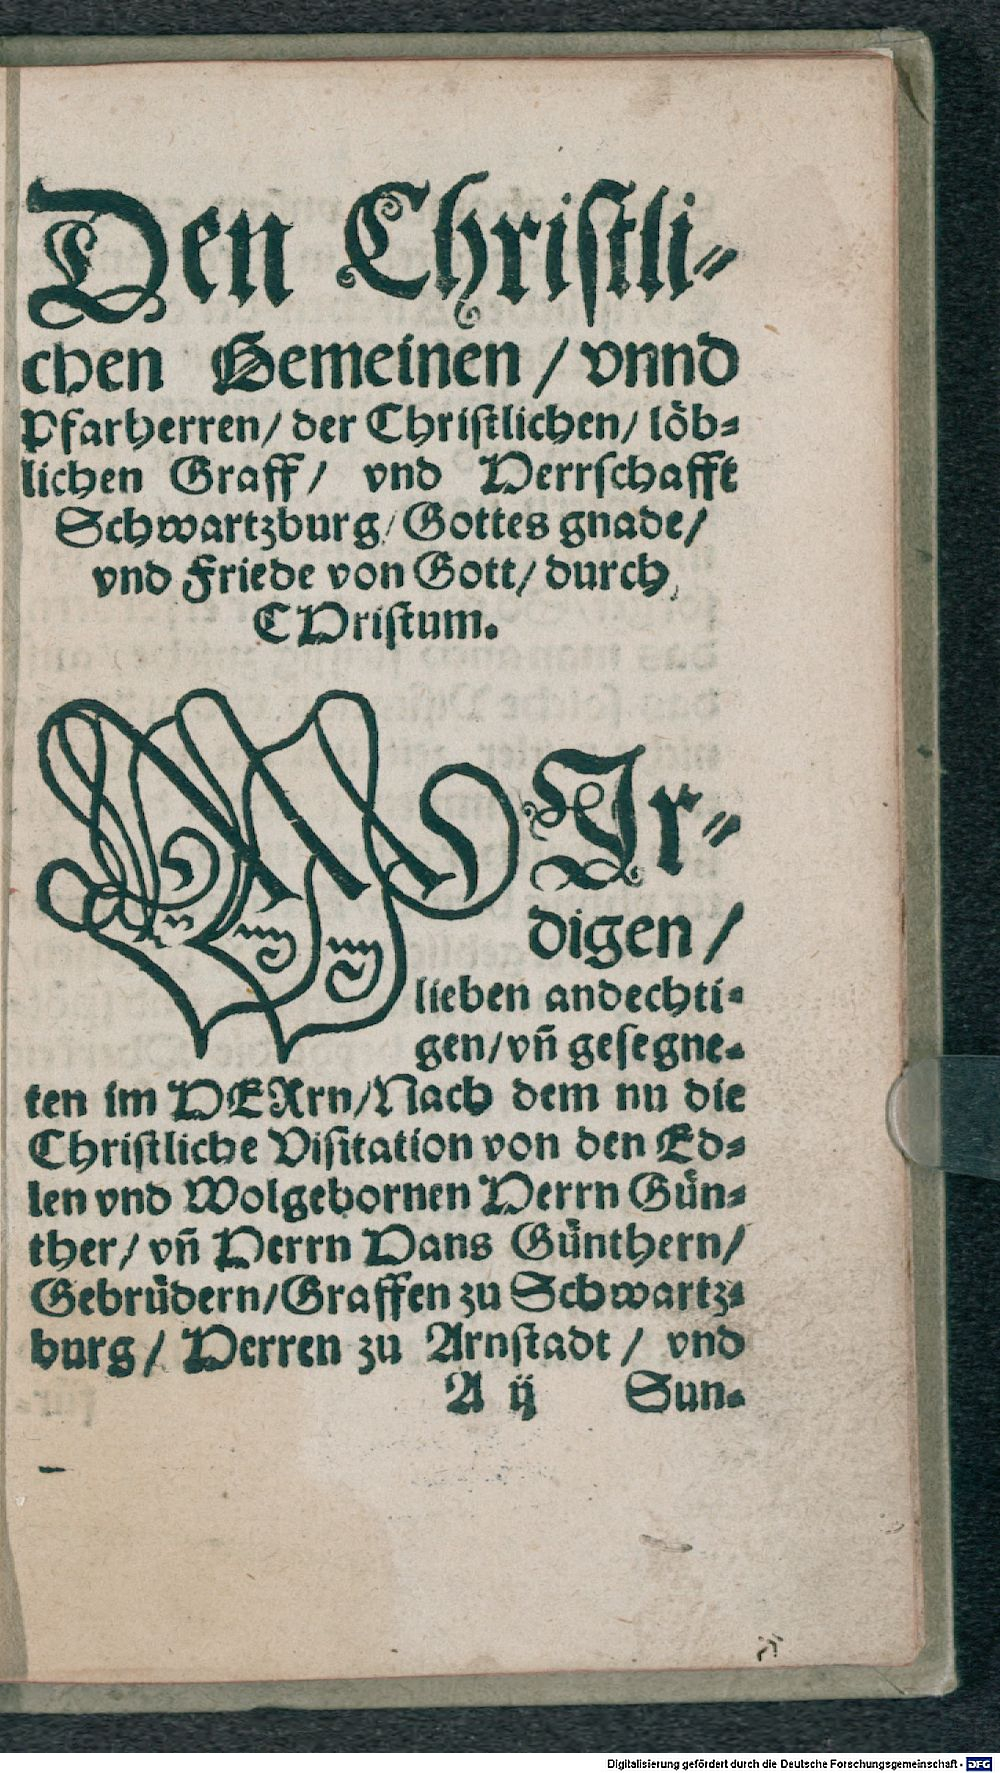 Den Christli⸗
chen Gemeinen / vnnd
Pfarherren / der Christlichen / löb⸗
lichen Graff / vnd Herrschafft
Schwartzburg / Gottes gnade /
vnd Friede von Gott / durch
CHristum.
WIr⸗
digen /
lieben andechti⸗
gen / vñ gesegne⸗
ten im HERrn / Nach dem nu die
Christliche Visitation von den Ed⸗
len vnd Wolgebornen Herrn Gün⸗
ther / vñ Herrn Hans Günthern /
Gebrüdern / Graffen zu Schwartz⸗
burg / Herren zu Arnstadt / vnd
A ij Sun⸗
Digitalisierung gefördert durch die Deutsche Forschungsgemeinschaft - DFG